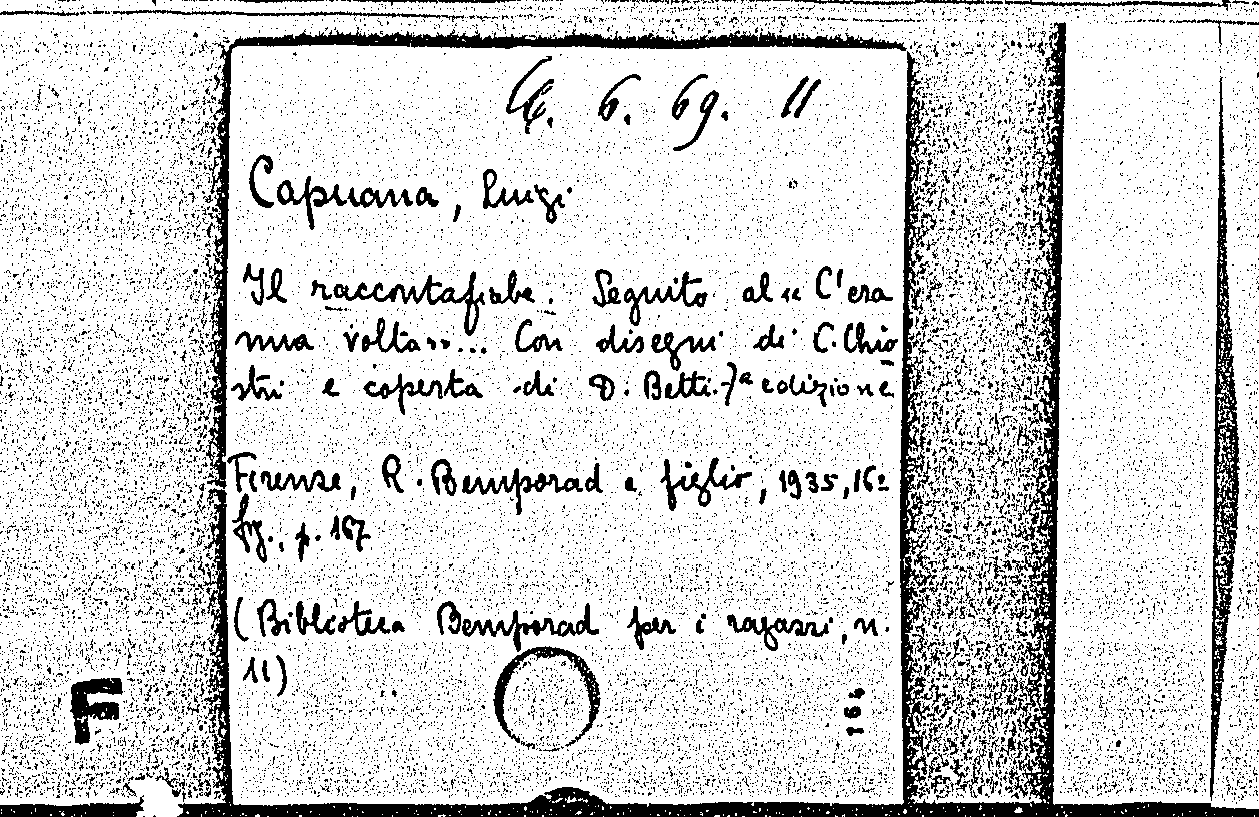 6. 69. 11
Capuana, Luigi
Il raccontafiabe. Seguito al « C'era
una volta»... Con disegni di C. Chio
stri e coperta di D. Betti. 7ª edizione
Firenze, R. Bemporad e figlio, 1935, 16º
fig., p. 167
(Biblioteca Bemporad per i ragazzi, n.
11)
F